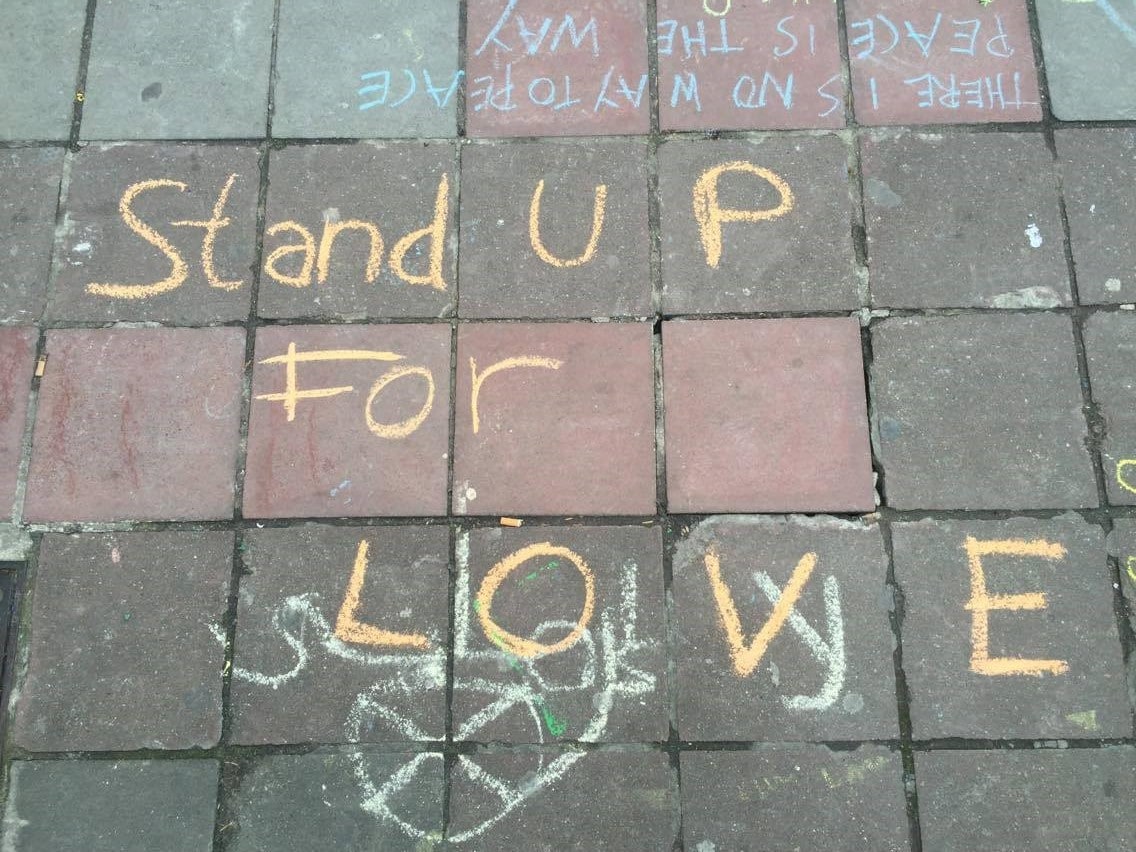 THERE IS NO WAY TO PEACE
PEACE IS THE WAY
Stand UP
For
LOVE